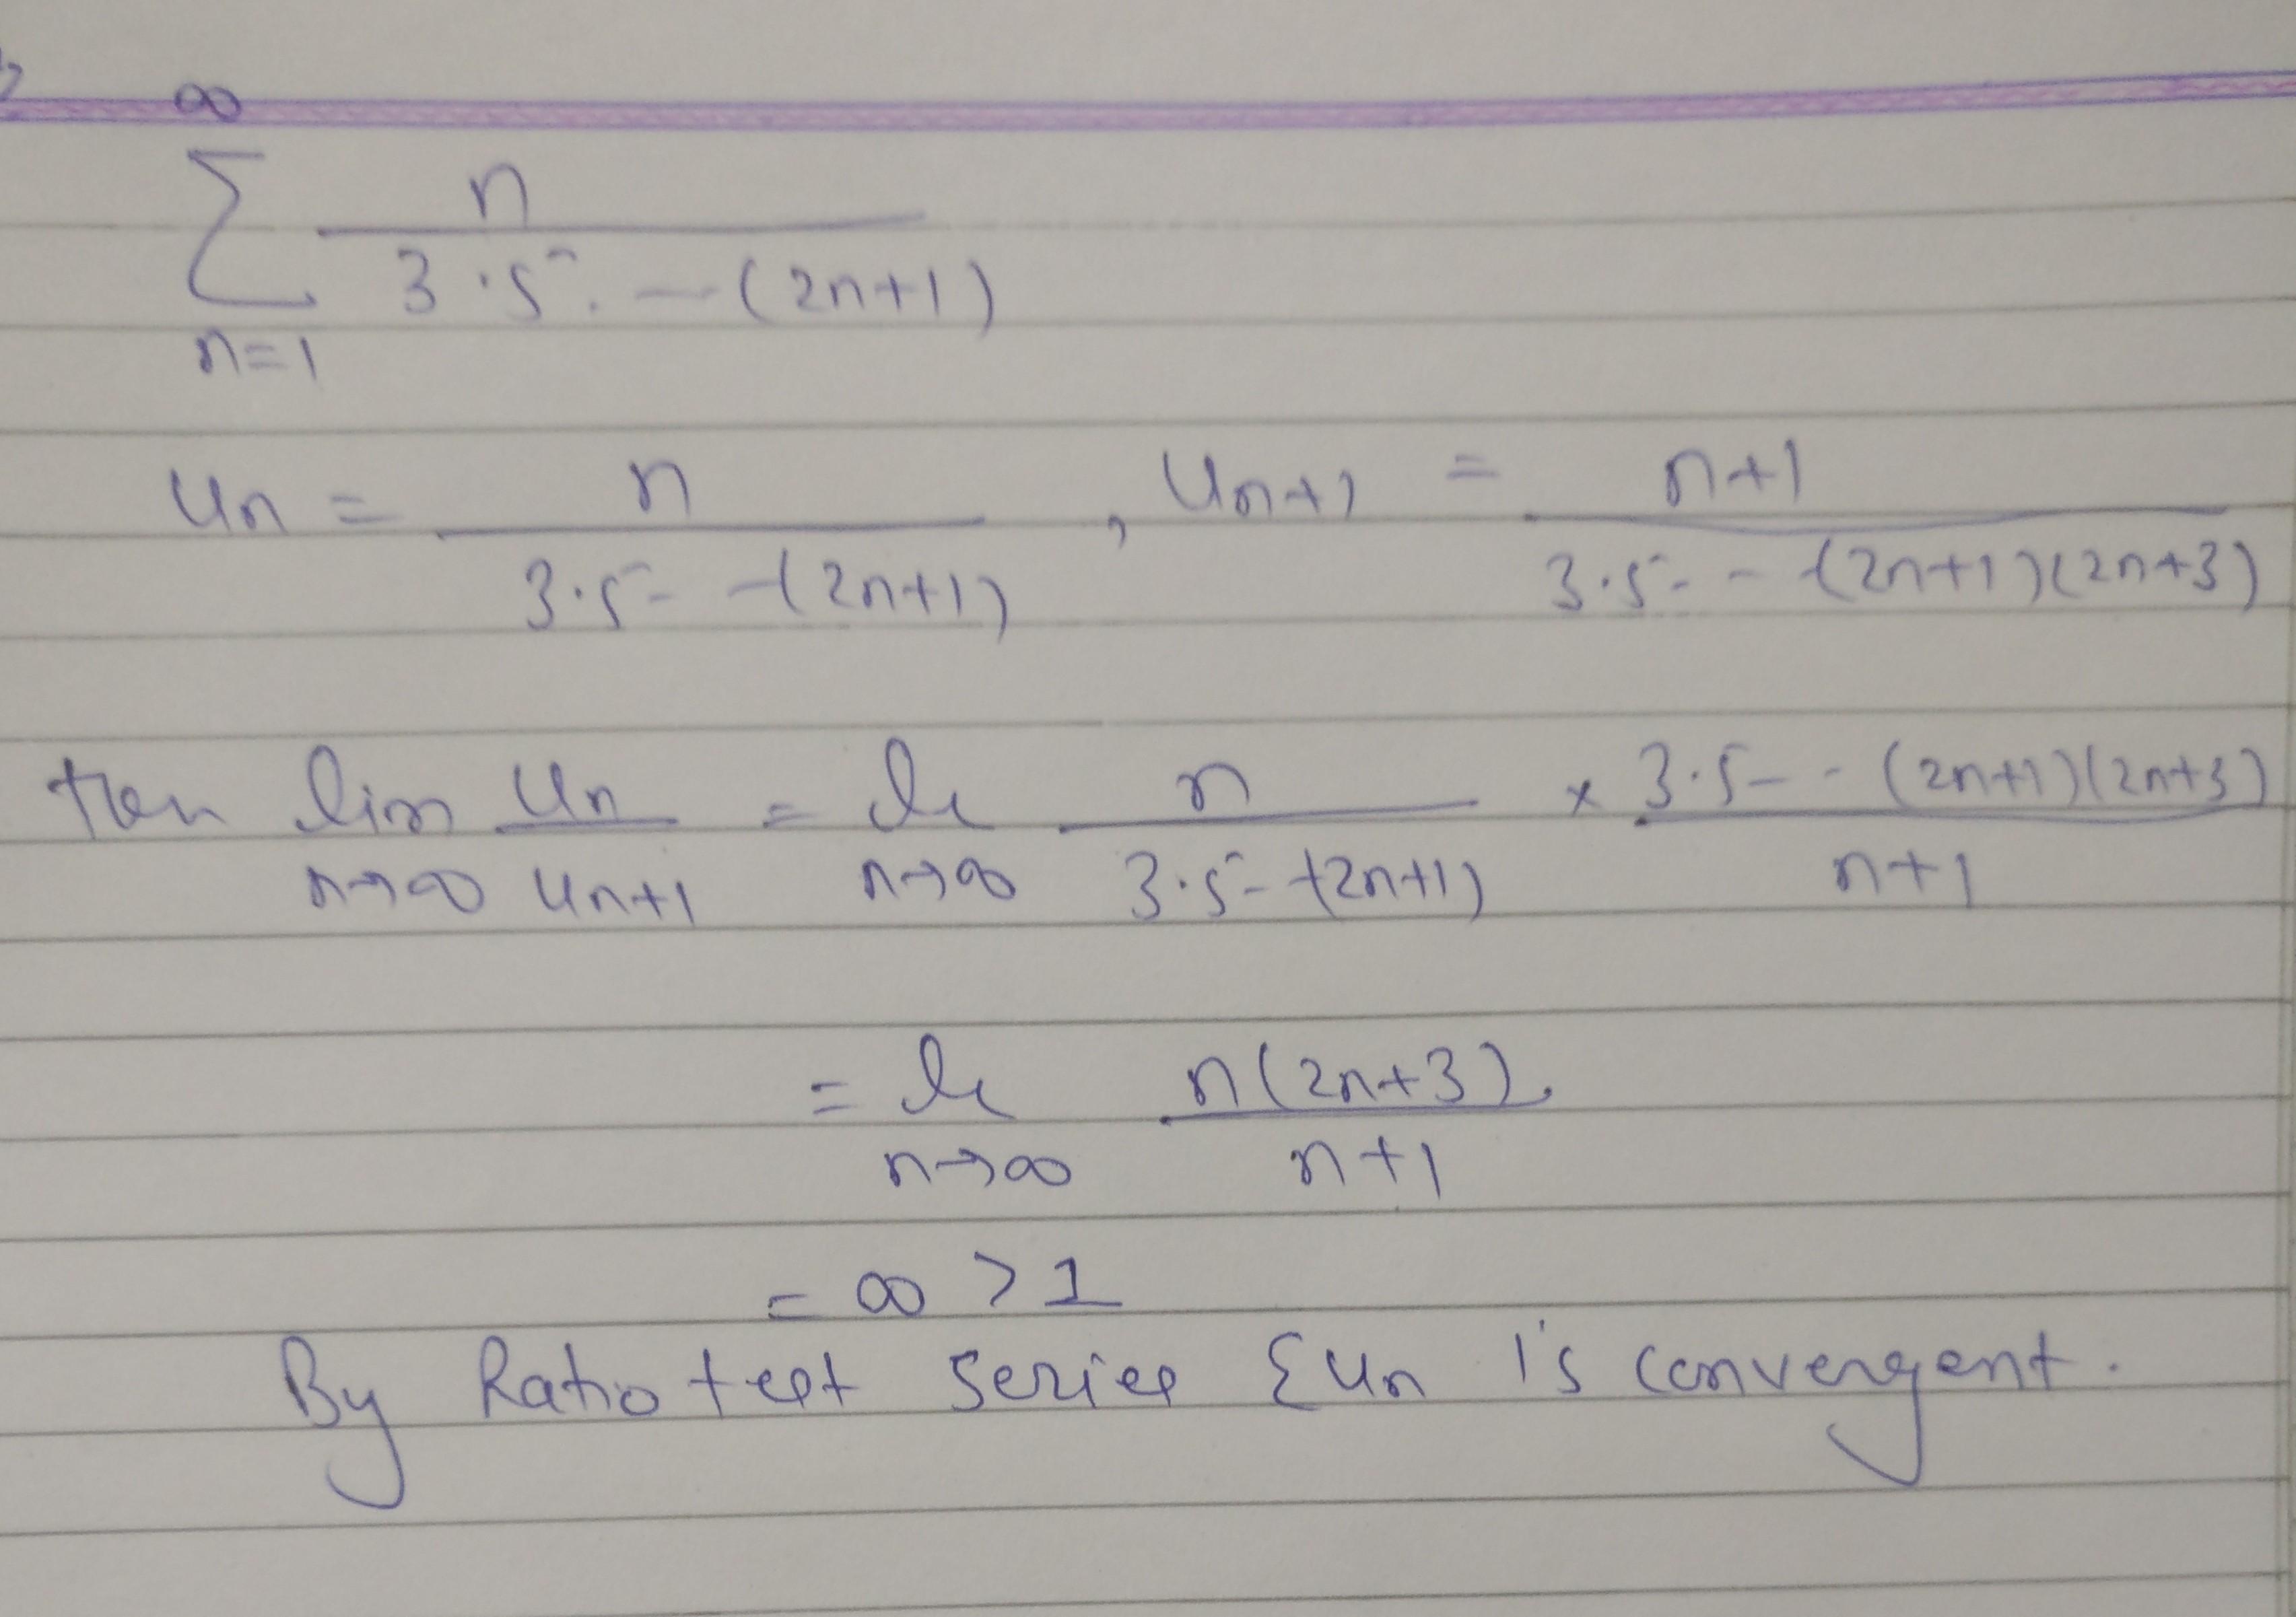 ∞
Σ n / 3·5·--(2n+1)
n=1
un = n / 3·5- -(2n+1) , un+1 = n+1 / 3·5- -(2n+1)(2n+3)
then lim n→∞ un / un+1 = lim n→∞ n / 3·5- -(2n+1) × 3·5- - (2n+1)(2n+3) / n+1
= lim n→∞ n(2n+3) / n+1
= ∞ > 1
By Ratio test series Σun is convergent.